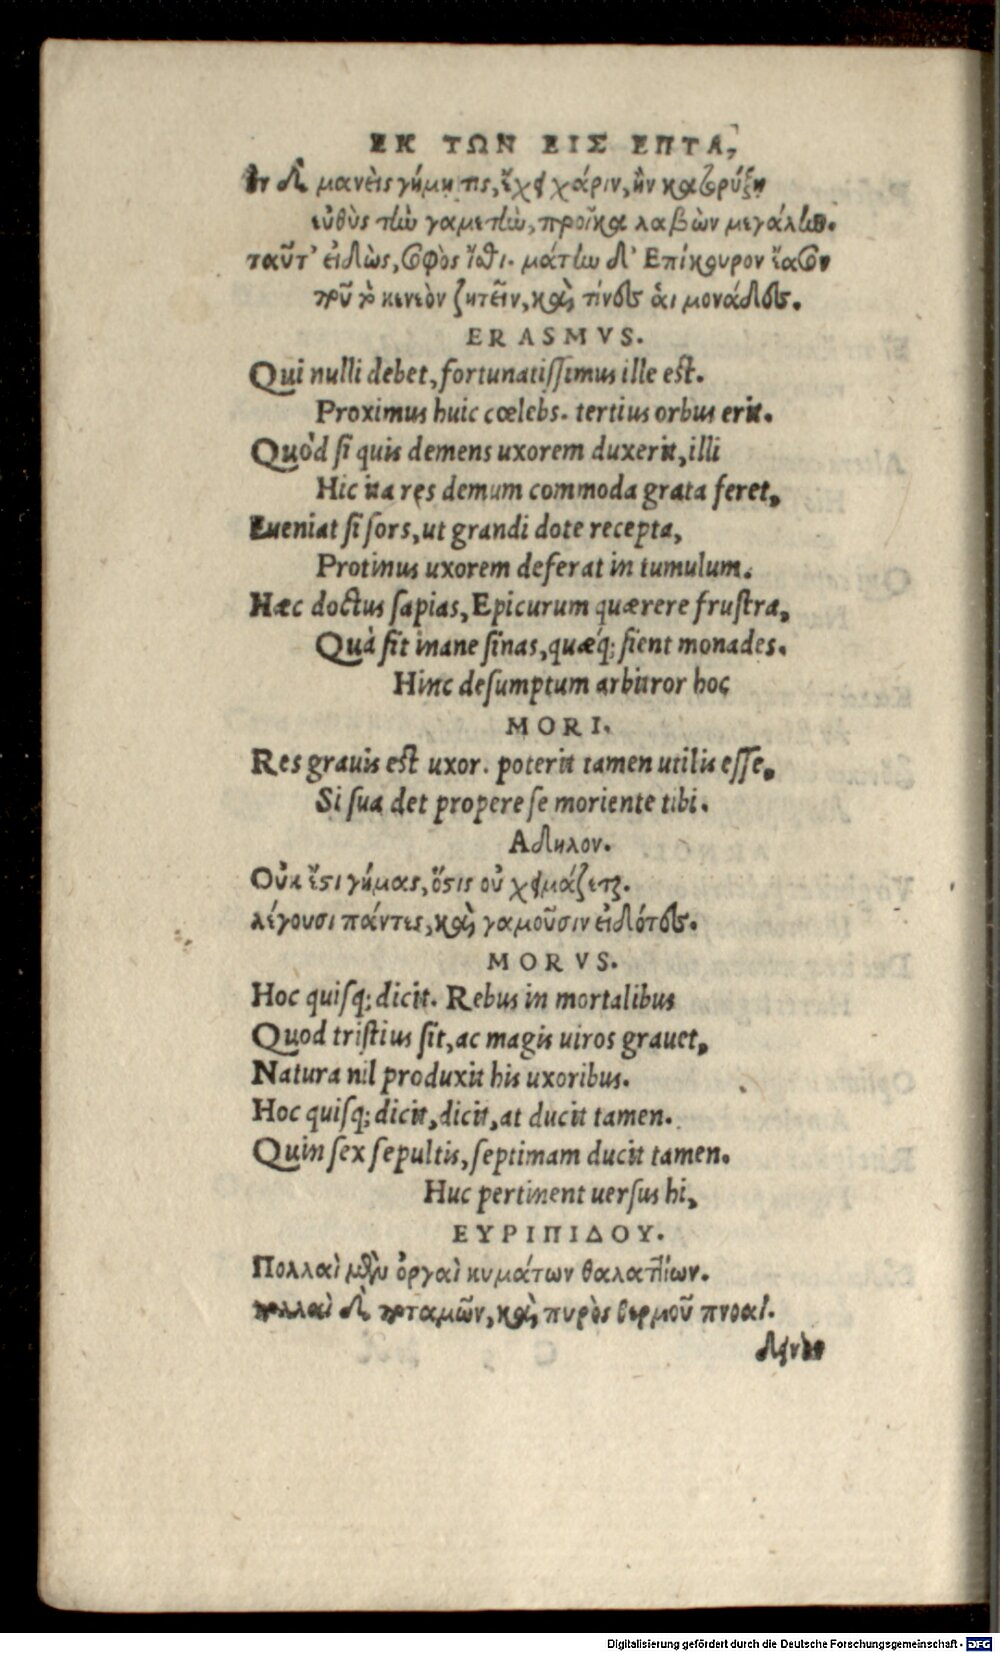 ΕΚ ΤΩΝ ΕΙΣ ΕΠΤΑ,
Ἢν δὲ μανεὶς γήμῃ τις, ἔχει χάριν, ἢν κατορύξῃ
εὐθὺς τὴν γαμετὴν, προῖκα λαβὼν μεγάλην.
ταῦτ' εἰδὼς, σοφὸς ἴσθι. μάτην δ' Επίκουρον ἔασον
ποῦ τὸ κενεὸν ζητεῖν, καὶ τίνες ἁι μονάδες.
ERASMVS.
Qui nulli debet, fortunatissimus ille est.
Proximus huic cœlebs. tertius orbus erit.
Quòd si quis demens uxorem duxerit, illi
Hic ita res demum commoda grata feret,
Eueniat si sors, ut grandi dote recepta,
Protinus uxorem deferat in tumulum.
Hæc doctus sapias, Epicurum quærere frustra,
Quà sit inane sinas, quæq; sient monades.
Hinc desumptum arbitror hoc
MORI.
Res grauis est uxor. poterit tamen utilis esse,
Si sua det propere se moriente tibi.
Αδηλον.
Οὐκ ἔστι γήμας, ὅστις οὐ χειμάζεται.
λέγουσι πάντες, καὶ γαμοῦσιν εἰδότες.
MORVS.
Hoc quisq; dicit. Rebus in mortalibus
Quod tristius sit, ac magis uiros grauet,
Natura nil produxit his uxoribus.
Hoc quisq; dicit, dicit, at ducit tamen.
Quin sex sepultis, septimam ducit tamen.
Huc pertinent uersus hi,
ΕΥΡΙΠΙΔΟΥ.
Πολλαὶ μὲν ὀργαὶ κυμάτων θαλαττίων.
πολλαὶ δὲ ποταμῶν, καὶ πυρὸς θερμοῦ πνοαί.
δεινὸν
Digitalisierung gefördert durch die Deutsche Forschungsgemeinschaft - DFG